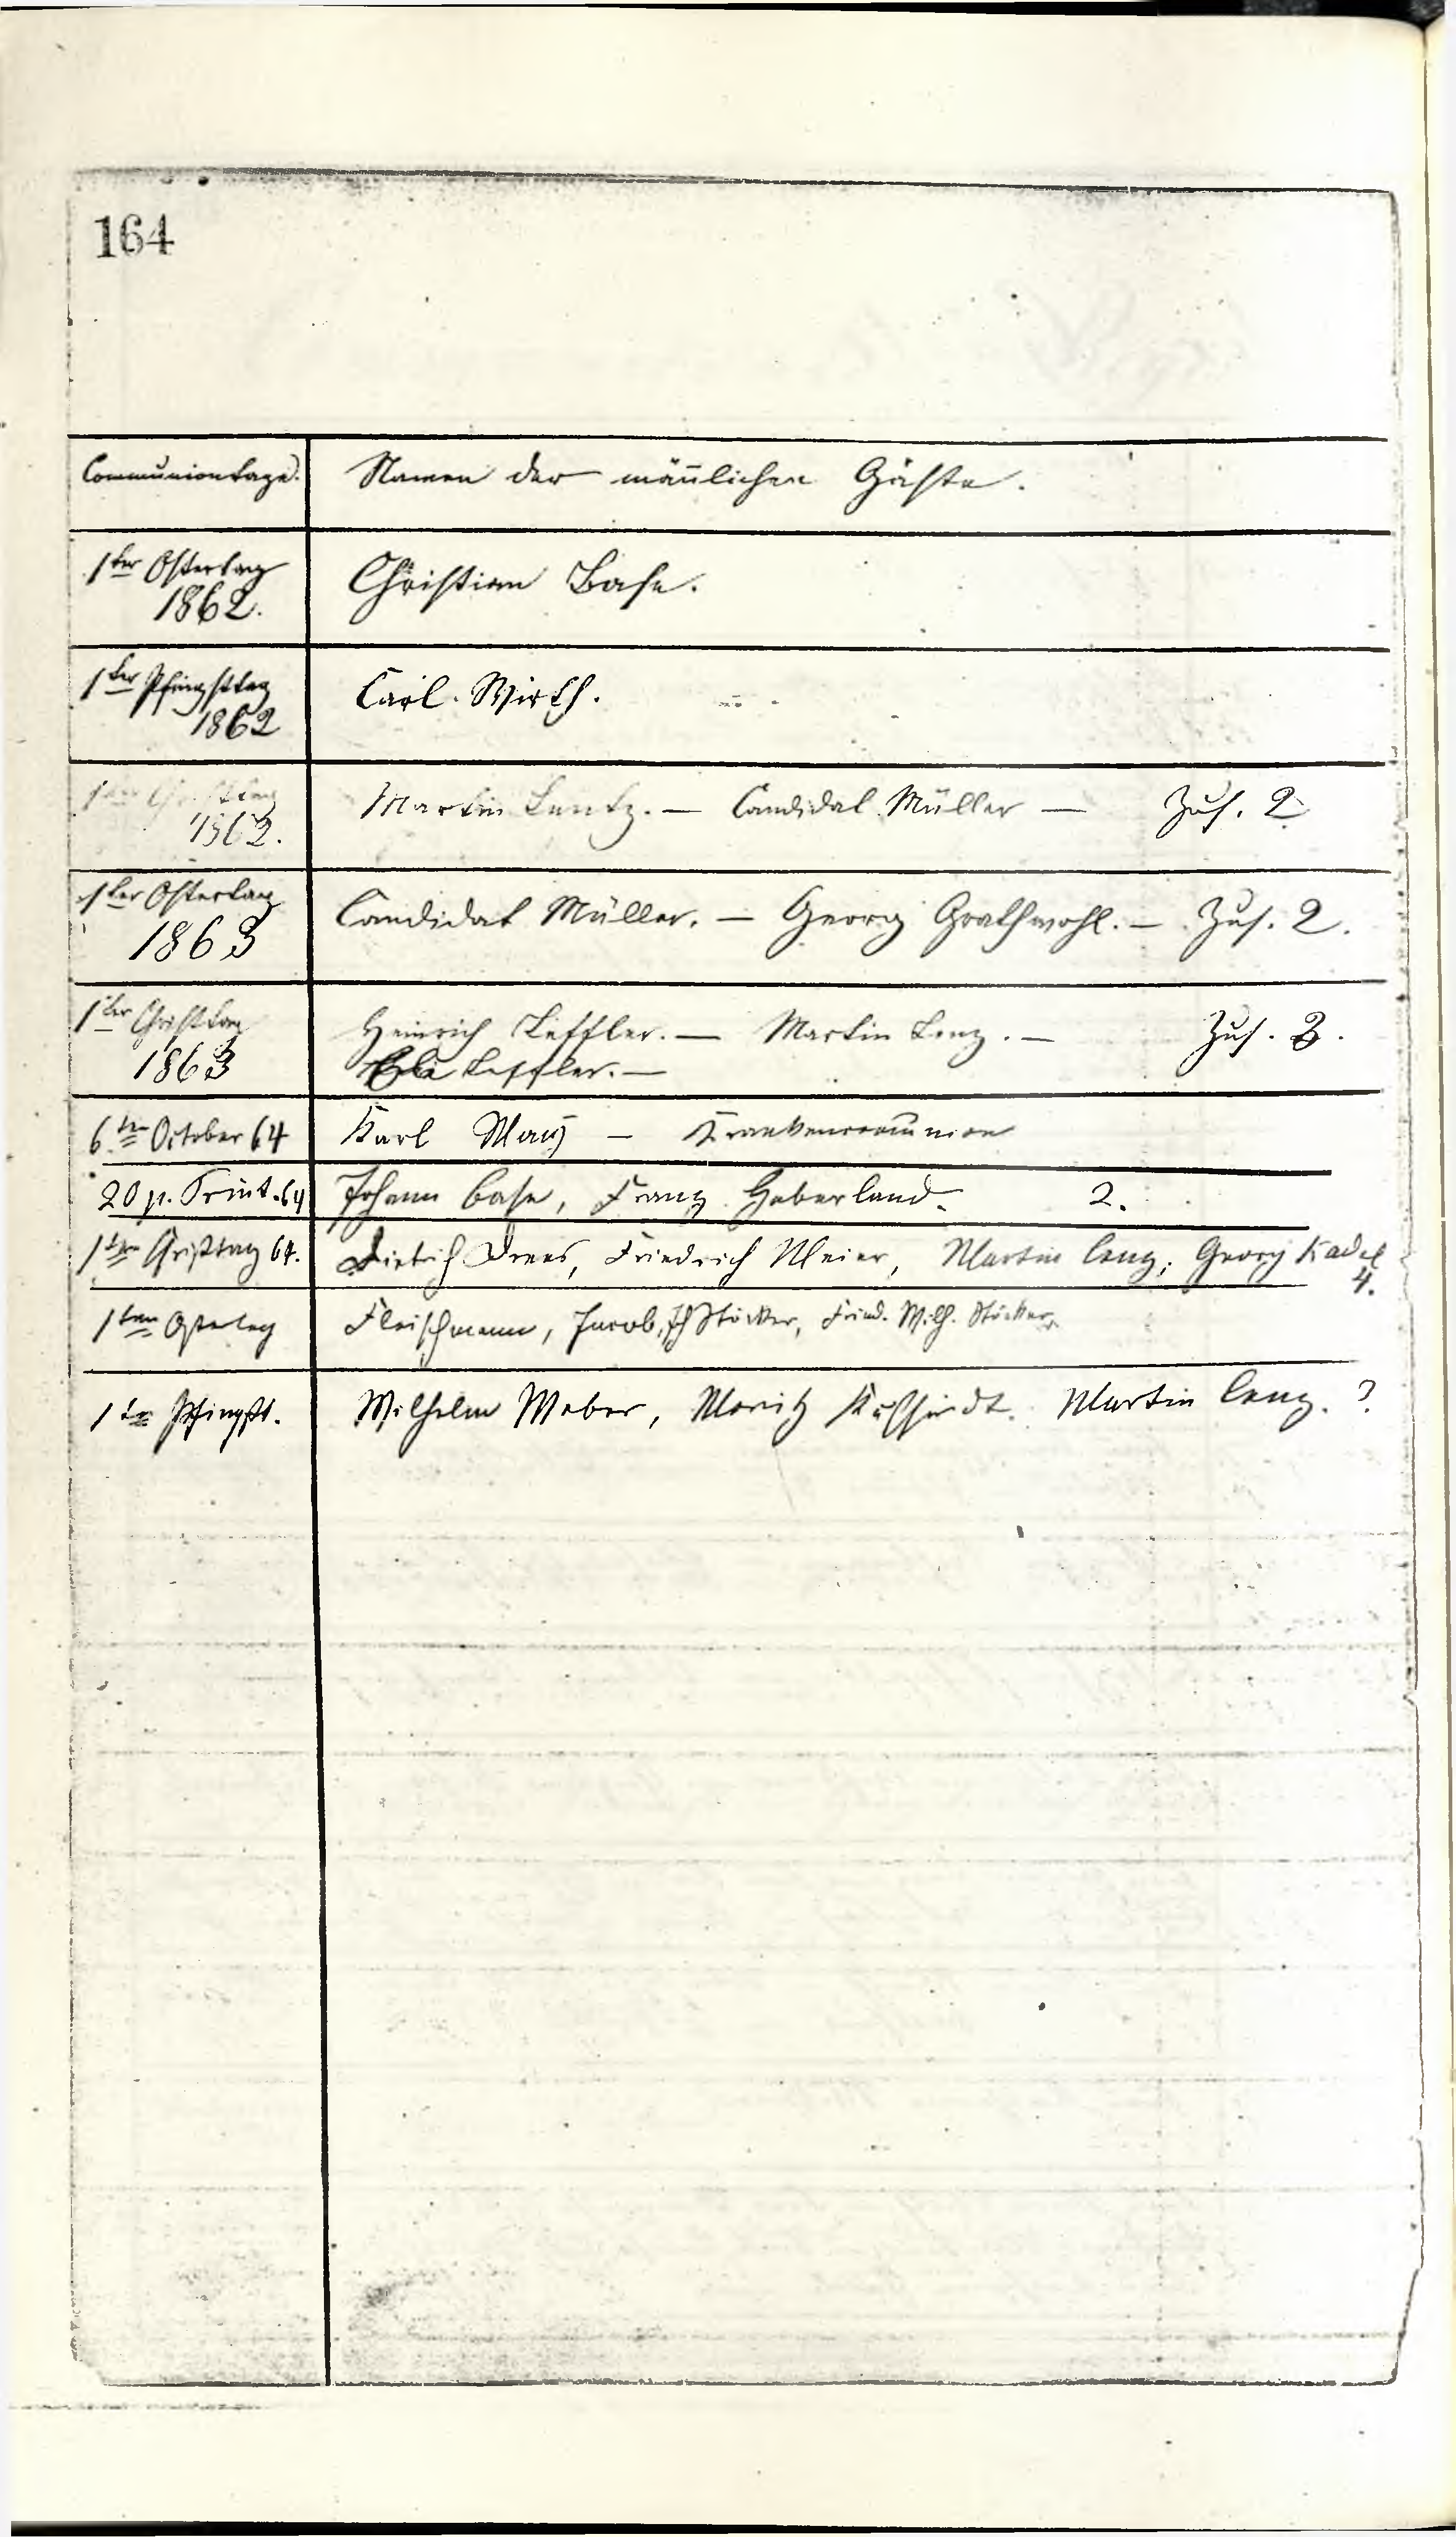 164
Communiontage. Namen der männlichen Gäste.
1ter Ostertag Christian Base.
1862.
1ter Pfingsttag Carl Wirth.
1862
1ter Christtag Martin Lentz. — Candidat Müller — Zus. 2
1862.
1ter Ostertag Candidat Müller. — Georg Grathwohl. — Zus. 2.
1863
1ter Christtag Heinrich Leffler. — Martin Lenz. — Zus. 3.
1863 Leffler. —
6ten October 64 Karl May — Krankencommunion
20 p. Trinit. 64 Johann Base, Franz Haberland. 2.
1ten Christtag 64. Dietrich Drees, Friedrich Meier, Martin Lenz, Georg Kadel
4.
1ten Ostertag Fleischmann, Jacob, Stöcker, Fried. Wilh. Stöcker,
1ten Pfingst. Wilhelm Weber, Moritz Martin Lenz. ?